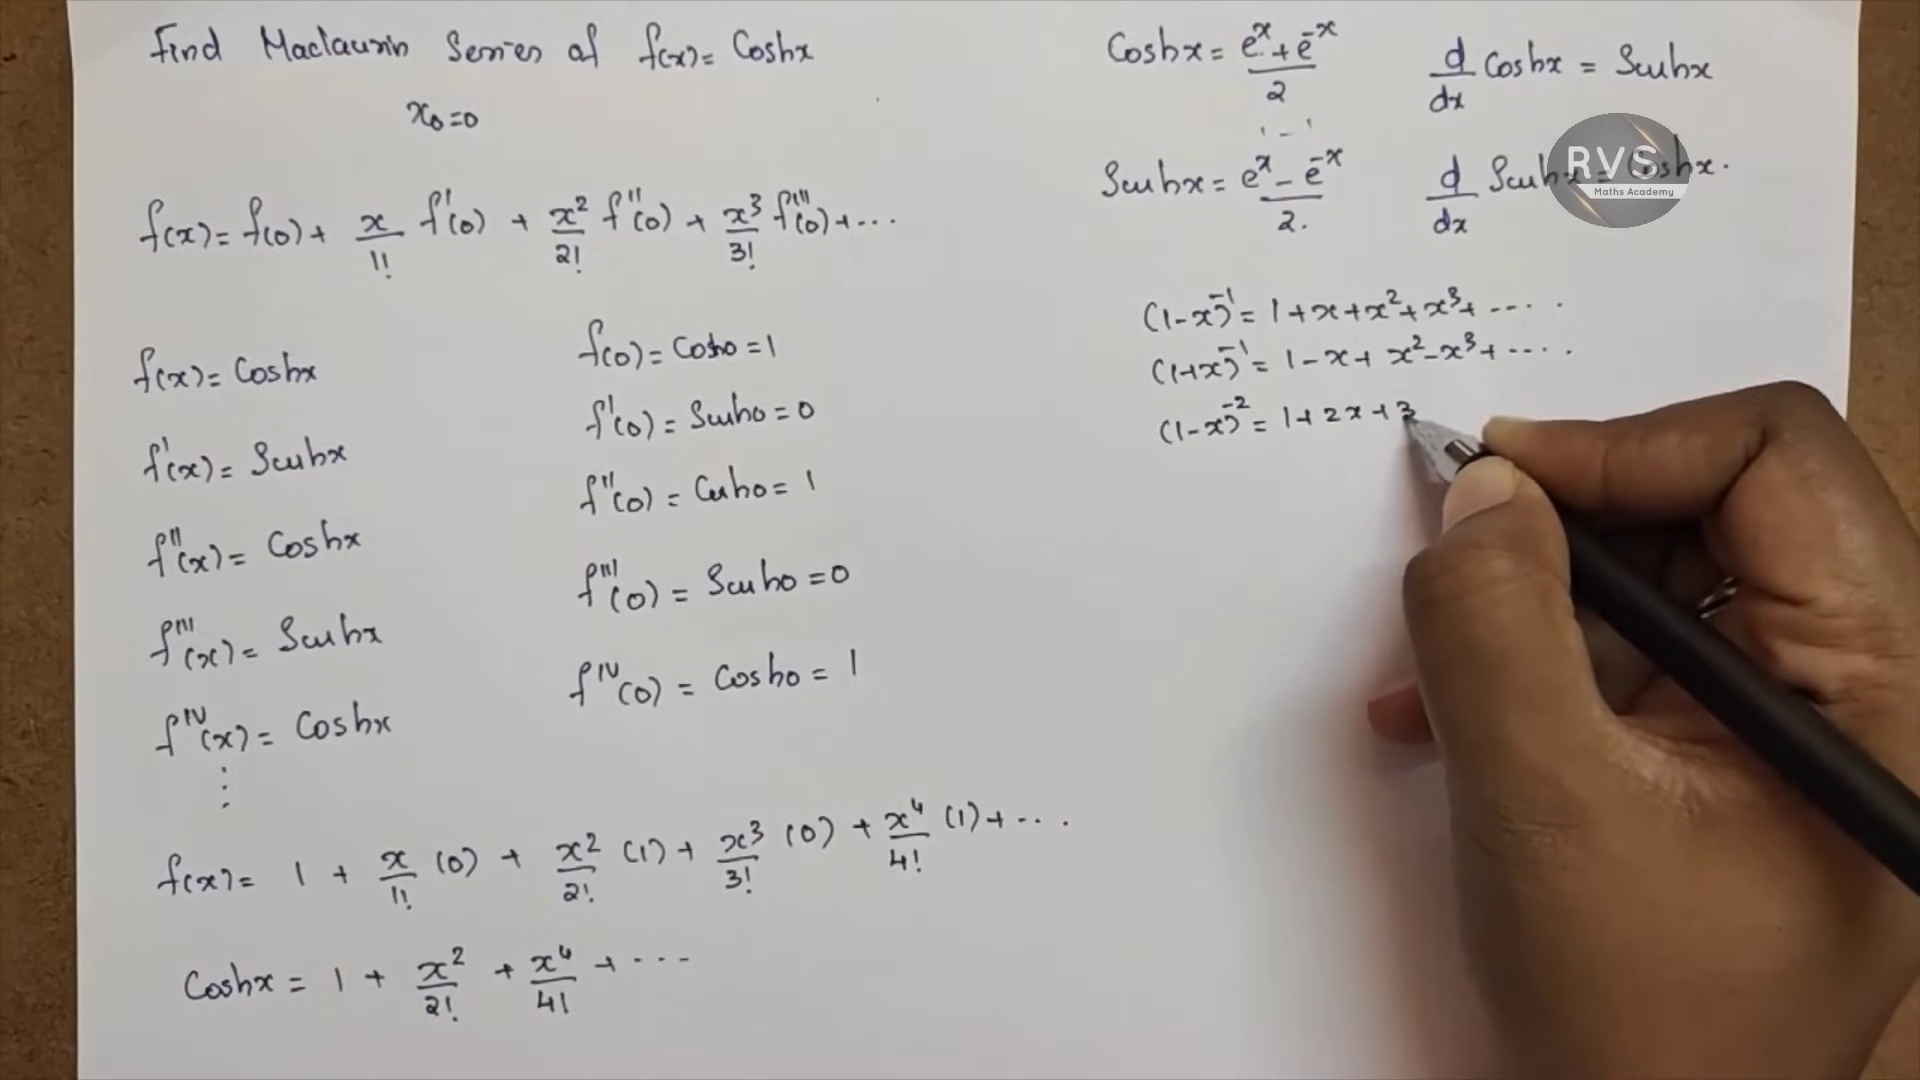 Find Maclaurin Series of f(x) = Coshx
x₀=0
f(x) = f(0) + x/1! f'(0) + x²/2! f''(0) + x³/3! f'''(0) + ...
f(x) = Coshx
f'(x) = Sinhx
f''(x) = Coshx
f'''(x) = Sinhx
f^IV(x) = Coshx
⋮
f(0) = Cosh0 = 1
f'(0) = Sinh0 = 0
f''(0) = Cosh0 = 1
f'''(0) = Sinh0 = 0
f^IV(0) = Cosh0 = 1
f(x) = 1 + x/1! (0) + x²/2! (1) + x³/3! (0) + x⁴/4! (1) + ...
Coshx = 1 + x²/2! + x⁴/4! + ...
Coshx = (e^x + e^-x)/2
d/dx Coshx = Sinhx
1 - 1
Sinhx = (e^x - e^-x)/2.
d/dx Sinhx = Coshx.
RVS
Maths Academy
(1-x)^-1 = 1+x+x²+x³+ ....
(1+x)^-1 = 1-x+x²-x³+ ....
(1-x)^-2 = 1+2x+3